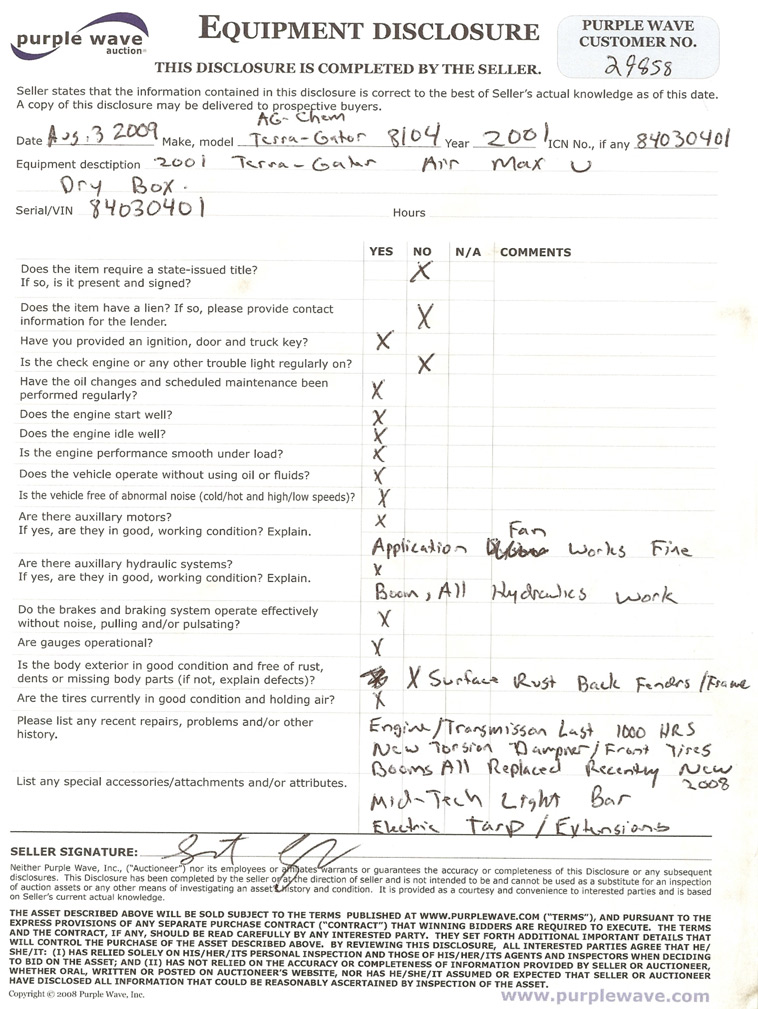 purple wave
auction
EQUIPMENT DISCLOSURE
PURPLE WAVE
CUSTOMER NO.
29858
THIS DISCLOSURE IS COMPLETED BY THE SELLER.
Seller states that the information contained in this disclosure is correct to the best of Seller's actual knowledge as of this date.
A copy of this disclosure may be delivered to prospective buyers.
AG-Chem
Date Aug. 3 2009 Make, model Terra-Gator 8104 Year 2001 ICN No., if any 84030401
Equipment desctiption 2001 Terra-Gator Air Max U
Dry Box.
Serial/VIN 84030401 Hours
YES NO N/A COMMENTS
Does the item require a state-issued title? X
If so, is it present and signed?
Does the item have a lien? If so, please provide contact X
information for the lender.
Have you provided an ignition, door and truck key? X
Is the check engine or any other trouble light regularly on? X
Have the oil changes and scheduled maintenance been X
performed regularly?
Does the engine start well? X
Does the engine idle well? X
Is the engine performance smooth under load? X
Does the vehicle operate without using oil or fluids? X
Is the vehicle free of abnormal noise (cold/hot and high/low speeds)? X
Are there auxillary motors? X
If yes, are they in good, working condition? Explain. Fan
Application Works Fine
Are there auxillary hydraulic systems? X
If yes, are they in good, working condition? Explain.
Boom, All Hydraulics work
Do the brakes and braking system operate effectively X
without noise, pulling and/or pulsating?
Are gauges operational? X
Is the body exterior in good condition and free of rust, X Surface Rust Back Fenders/Frame
dents or missing body parts (if not, explain defects)?
Are the tires currently in good condition and holding air? X
Please list any recent repairs, problems and/or other Engine/Transmisson Last 1000 HRS
history. New Torsion Dampner/Front Tires
Booms All Replaced Recently New
2008
List any special accessories/attachments and/or attributes.
Mid-Tech Light Bar
Electric Tarp/Extensions
SELLER SIGNATURE:
Neither Purple Wave, Inc., ("Auctioneer") nor its employees or affiliates warrants or guarantees the accuracy or completeness of this Disclosure or any subsequent
disclosures. This Disclosure has been completed by the seller or at the direction of seller and is not intended to be and cannot be used as a substitute for an inspection
of auction assets or any other means of investigating an asset history and condition. It is provided as a courtesy and convenience to interested parties and is based
on Seller's current actual knowledge.
THE ASSET DESCRIBED ABOVE WILL BE SOLD SUBJECT TO THE TERMS PUBLISHED AT WWW.PURPLEWAVE.COM ("TERMS"), AND PURSUANT TO THE
EXPRESS PROVISIONS OF ANY SEPARATE PURCHASE CONTRACT ("CONTRACT") THAT WINNING BIDDERS ARE REQUIRED TO EXECUTE. THE TERMS
AND THE CONTRACT, IF ANY, SHOULD BE READ CAREFULLY BY ANY INTERESTED PARTY. THEY SET FORTH ADDITIONAL IMPORTANT DETAILS THAT
WILL CONTROL THE PURCHASE OF THE ASSET DESCRIBED ABOVE. BY REVIEWING THIS DISCLOSURE, ALL INTERESTED PARTIES AGREE THAT HE/
SHE/IT: (I) HAS RELIED SOLELY ON HIS/HER/ITS PERSONAL INSPECTION AND THOSE OF HIS/HER/ITS AGENTS AND INSPECTORS WHEN DECIDING
TO BID ON THE ASSET; AND (II) HAS NOT RELIED ON THE ACCURACY OR COMPLETENESS OF INFORMATION PROVIDED BY SELLER OR AUCTIONEER,
WHETHER ORAL, WRITTEN OR POSTED ON AUCTIONEER'S WEBSITE, NOR HAS HE/SHE/IT ASSUMED OR EXPECTED THAT SELLER OR AUCTIONEER
HAVE DISCLOSED ALL INFORMATION THAT COULD BE REASONABLY ASCERTAINED BY INSPECTION OF THE ASSET.
Copyright © 2008 Purple Wave, Inc.
www.purplewave.com